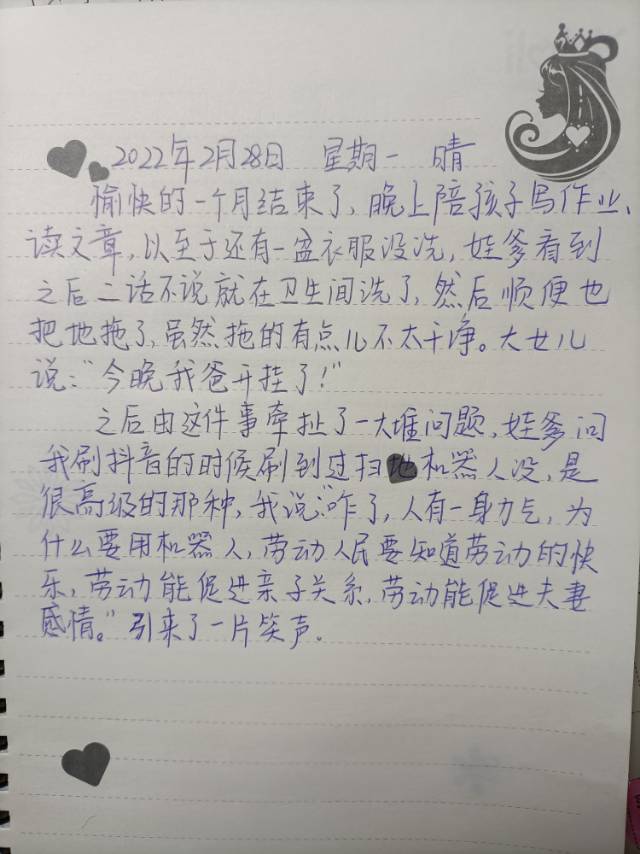 2022年2月28日 星期一 晴
愉快的一个月结束了，晚上陪孩子写作业、
读文章，以至于还有一盆衣服没洗，娃爹看到
之后二话不说就在卫生间洗了，然后顺便也
把地拖了，虽然拖的有点儿不太干净。大女儿
说：“今晚我爸开挂了！”
之后由这件事牵扯了一大堆问题，娃爹问
我刷抖音的时候刷到过扫地机器人没，是
很高级的那种，我说：“咋了，人有一身力气，为
什么要用机器人，劳动人民要知道劳动的快
乐，劳动能促进亲子关系，劳动能促进夫妻
感情。”引来了一片笑声。